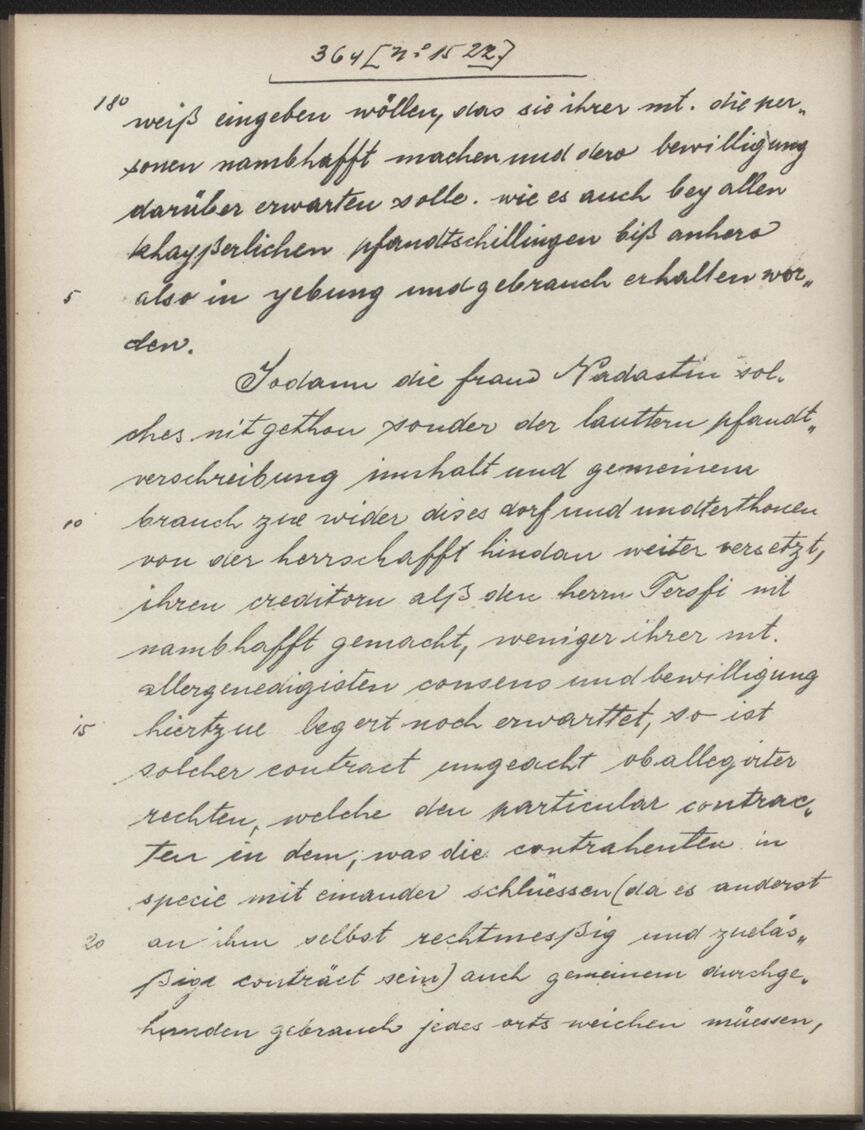 364 [No 1522.]
180 weiß eingeben wöllen, das sie ihrer mt. die per„
sonen nambhafft machen und dero bewilligung
darüber erwarten solle. wie es auch bey allen
khayßerlichen pfandtschillingen biß anhero
5 also in yebung und gebrauch erhalten wor„
den.
Sodann die frau Nadastin sol„
ches nit gethon sonder der lauttern pfandt„
verschreibung innhalt und gemeinem
10 brauch zue wider dises dorf und undterthonen
von der herrschafft hindan weiter versetzt,
ihren creditorn alß den herrn Tersfi nit
nambhafft gemacht, weniger ihrer mt.
allergenedigisten consens und bewilligung
15 hiertzue begert noch erwarttet, so ist
solcher contract ungeacht oballegirter
rechten, welche den particular contrac„
ten in dem, was die contrahenten in
specie mit einander schlüessen (da es anderst
20 an ihm selbst rechtmeßig und zueläs„
ßige conträct sein) auch gemeinem durchge„
hunden gebrauch jedes orts weichen müessen,